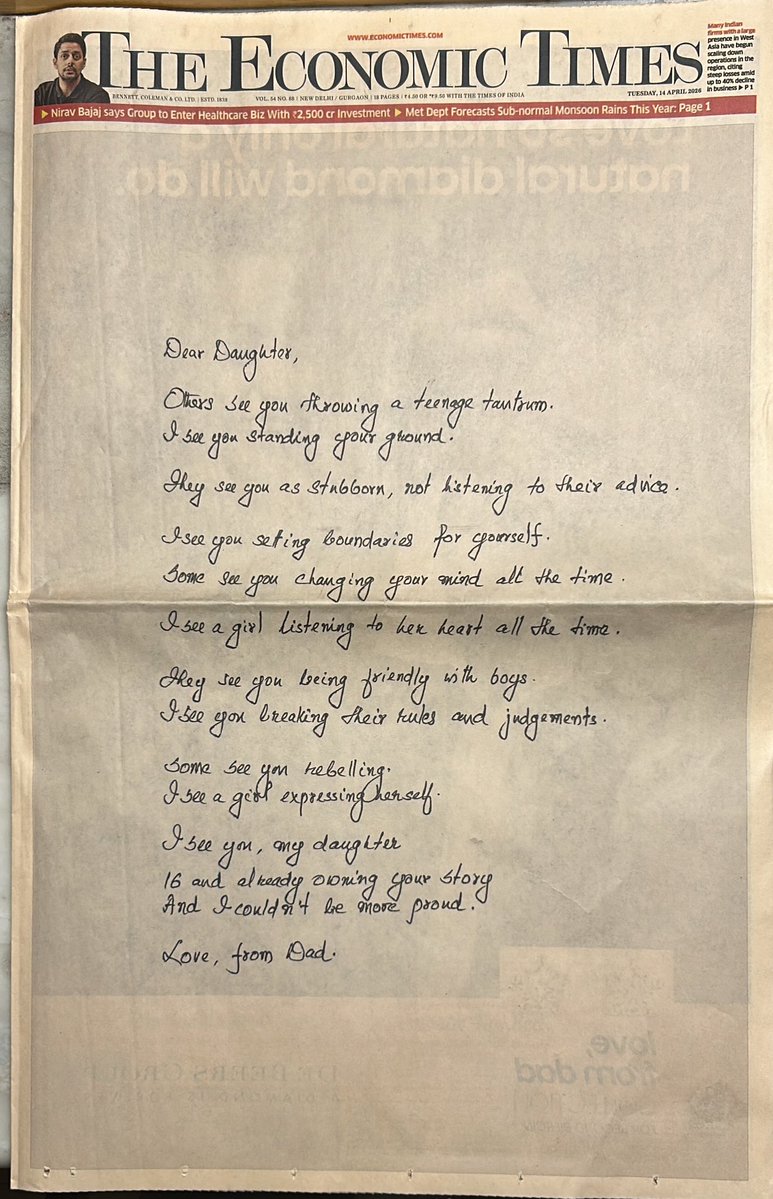 WWW.ECONOMICTIMES.COM
THE ECONOMIC TIMES
BENNETT, COLEMAN & CO. LTD. | ESTD. 1838
VOL. 54 NO. 88 | NEW DELHI / GURGAON | 18 PAGES | ₹4.50 OR *₹9.50 WITH THE TIMES OF INDIA
TUESDAY, 14 APRIL 2026
Many Indian
firms with a large
presence in West
Asia have begun
scaling down
operations in the
region, citing
steep losses amid
up to 40% decline
in business ▶ P 1
▶ Nirav Bajaj says Group to Enter Healthcare Biz With ₹2,500 cr Investment ▶ Met Dept Forecasts Sub-normal Monsoon Rains This Year: Page 1
Love so natural only a
natural diamond will do.
Dear Daughter,
Others see you throwing a teenage tantrum.
I see you standing your ground.
They see you as stubborn, not listening to their advice.
I see you setting boundaries for yourself.
Some see you changing your mind all the time.
I see a girl listening to her heart all the time.
They see you being friendly with boys.
I see you breaking their rules and judgements.
Some see you rebelling.
I see a girl expressing herself.
I see you, my daughter
16 and already owning your story
And I couldn't be more proud.
Love, from Dad.
love,
from dad
DE BEERS GROUP
A DIAMOND IS FOREVER